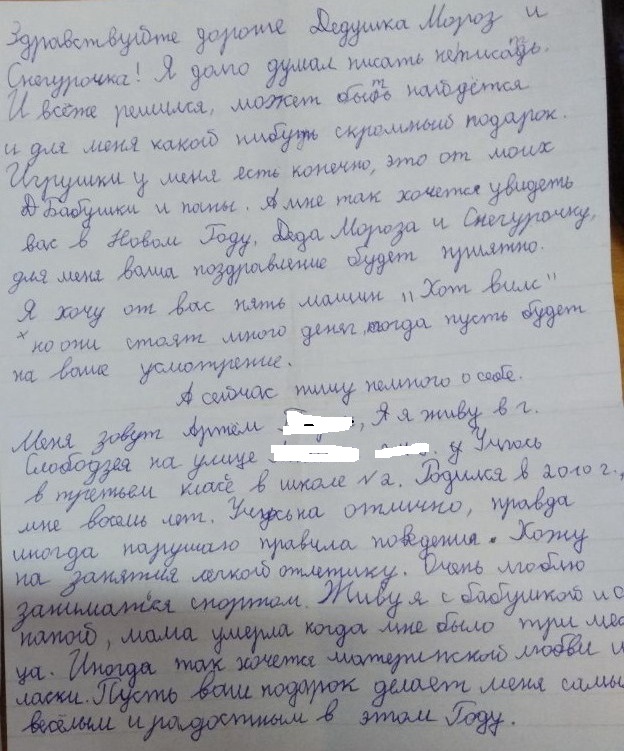 Здравствуйте дорогие Дедушка Мороз и
Снегурочка! Я долго думал писать неписать.
И всёже решился, может быть найдётся
и для меня какой нибуть скромный подарок.
Игрушки у меня есть конечно, это от моих
Бабушки и папы. А мне так хочется увидеть
вас в Новом Году, Деда Мороза и Снегурочку,
для меня ваша поздравление будет приятно.
Я хочу от вас пять машин "Хот вилс"
но они стоят много денег, тогда пусть будет
на ваше усмотрение.
А сейчас пишу немного о себе.
Меня зовут Артём , Я я живу в г.
Слободзея на улице у Учусь
в третьем класе в школе №2. Родился в 2010 г.,
мне восемь лет. Учусь на отлично, правда
иногда нарушаю правила поведения. Хожу
на занятия легкой отлетику. Очень люблю
заниматся спортом. Живу я с бабушкой и с
папой, мама умерла когда мне было три меся
ца. Иногда так хочется материнской любви и
ласки. Пусть ваш подарок делает меня самы
весёлым и радостным в этом Году.